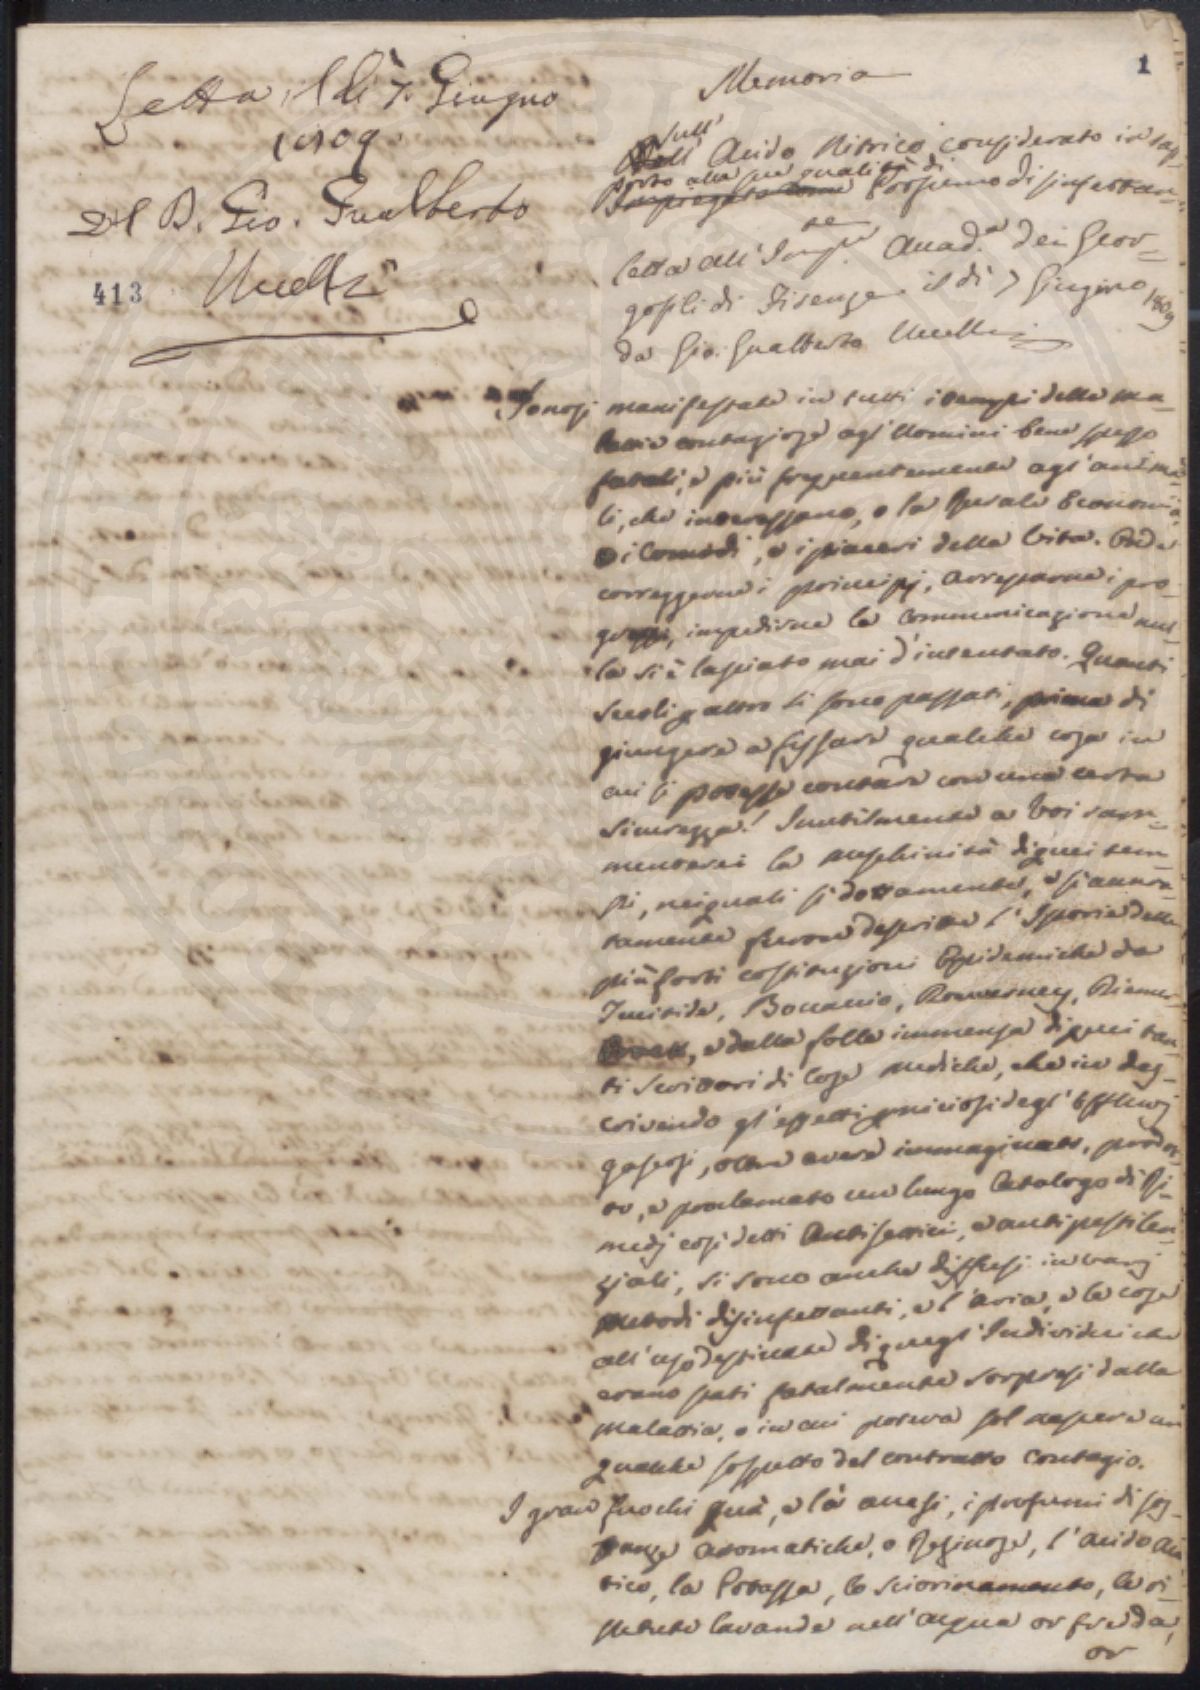 1
Letta il dì 7. Giugno
1809.
Del D. Gio. Gualberto
Uccelli
413
Memoria
Sull'
Dell' Acido Nitrico considerato in rap-
porto alla sua qualità di
Impregato come Possumo disinfettan-
te
letta all' Imp.le Accad.a dei Geor-
gofili di Firenze il dì 7 Giugno 1809
da Gio. Gualberto Uccelli
Sonosi manifestate in tutti i tempi delle ma-
lattie contagiose agl' Uomini bene spesso
fatali, e più frequentemente agl' anima-
li, che interessano, o la Rurale Economia,
o i Comodi, e i piaceri della Vita. Onde
correggerne i principj, arrestarne i pro-
gressi, impedirne la communicazione nul-
la si è lasciato mai d'intentato. Quanti
Secoli p altro si sono passati, prima di
giungere a fissare qualche cosa in
cui si potesse contare con una certa
sicurezza! Inutilmente a Voi ram-
menterei la meschinità di quei tem-
pi, nei quali sì dottamente, e sì accura-
tamente furono descritte l' Istorie delle
più forti costituzioni Epidemiche da
Tucidide, Boccaccio, Diemer-
broek, e dalla folla immensa di quei tan-
ti Scrittori di Cose mediche, che in des-
crivendo gl' effetti perniciosi degl' Effluvj
gaseosi, oltre avere immaginato, prodot-
to, e proclamato un lungo Catalogo di Ri-
medj così detti Antisettici, e antipestilen-
ziali, si sono anche diffusi in varj
metodi disinfettanti, e l' aria, e le cose
all' uso destinate di quegl' Individui che
erano stati fatalmente sorpresi dalla
malattia, o in cui poteva sol nascere un
qualche sospetto del contratto contagio.
I gran fuochi quà, e là accesi, i profumi di sos-
tanze aromatiche, o Resinose, l' acido ace-
tico, la Potassa, lo sciorinamento, le ri-
petute lavande nell' acqua or fredda,
or